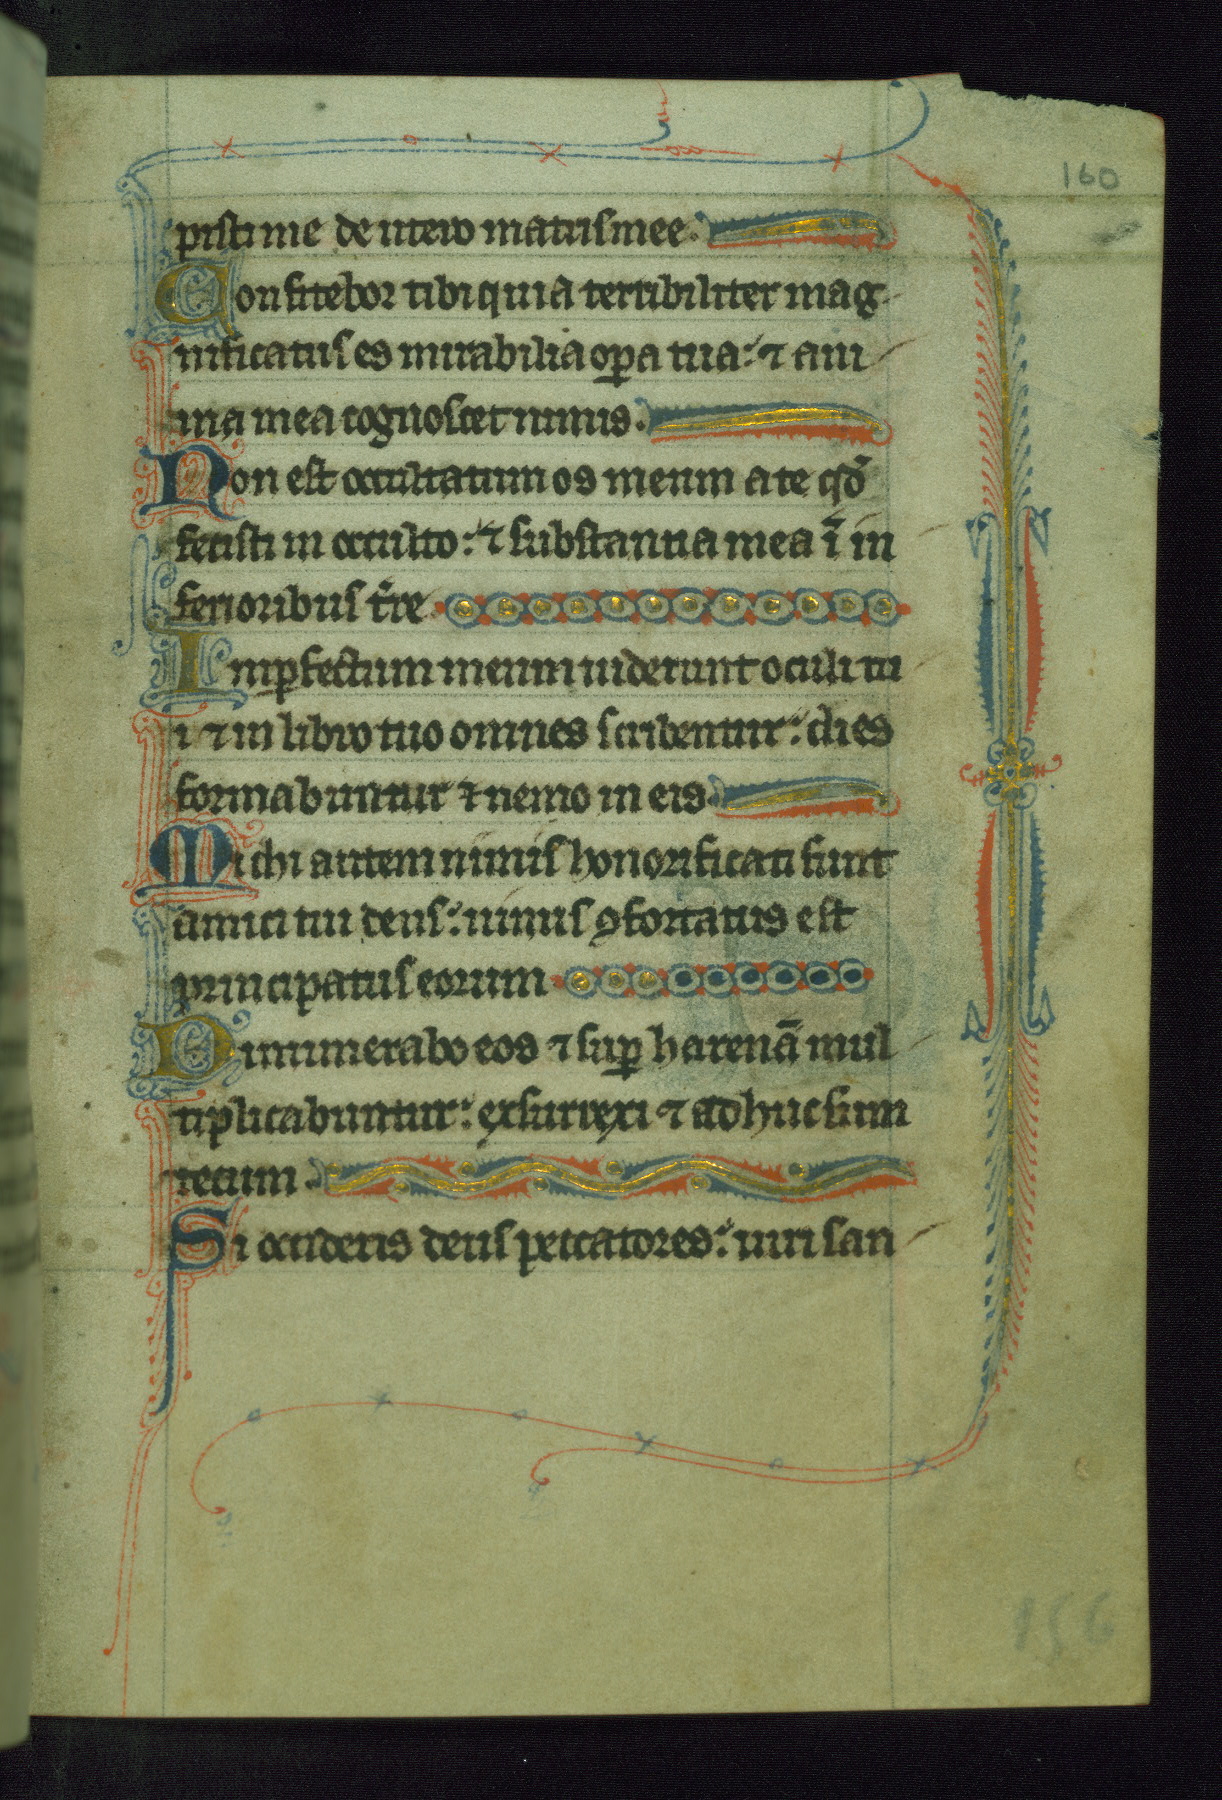 160
pisti me de utero matris mee.
Confitebor tibi quia terribiliter mag-
nificatus es mirabilia opa tua: ⁊ ani
ma mea cognoscet nimis.
Non est occultatum os meum a te qđ
fecisti in occulto: ⁊ substantia mea ī in
ferioribus t̄re
Inpfectum meum uiderunt oculi tu
i ⁊ in libro tuo omnes scribentur: dies
formabuntur ⁊ nemo in eis.
Michi autem nimis honorificati sunt
amici tui deus: nimis ꝯfortatus est
principatus eorum
Dinumerabo eos ⁊ sup harenā mul
tiplicabuntur: exsurrexi ⁊ adhuc sum
tecum.
Si occideris deus peccatores: uiri san
156